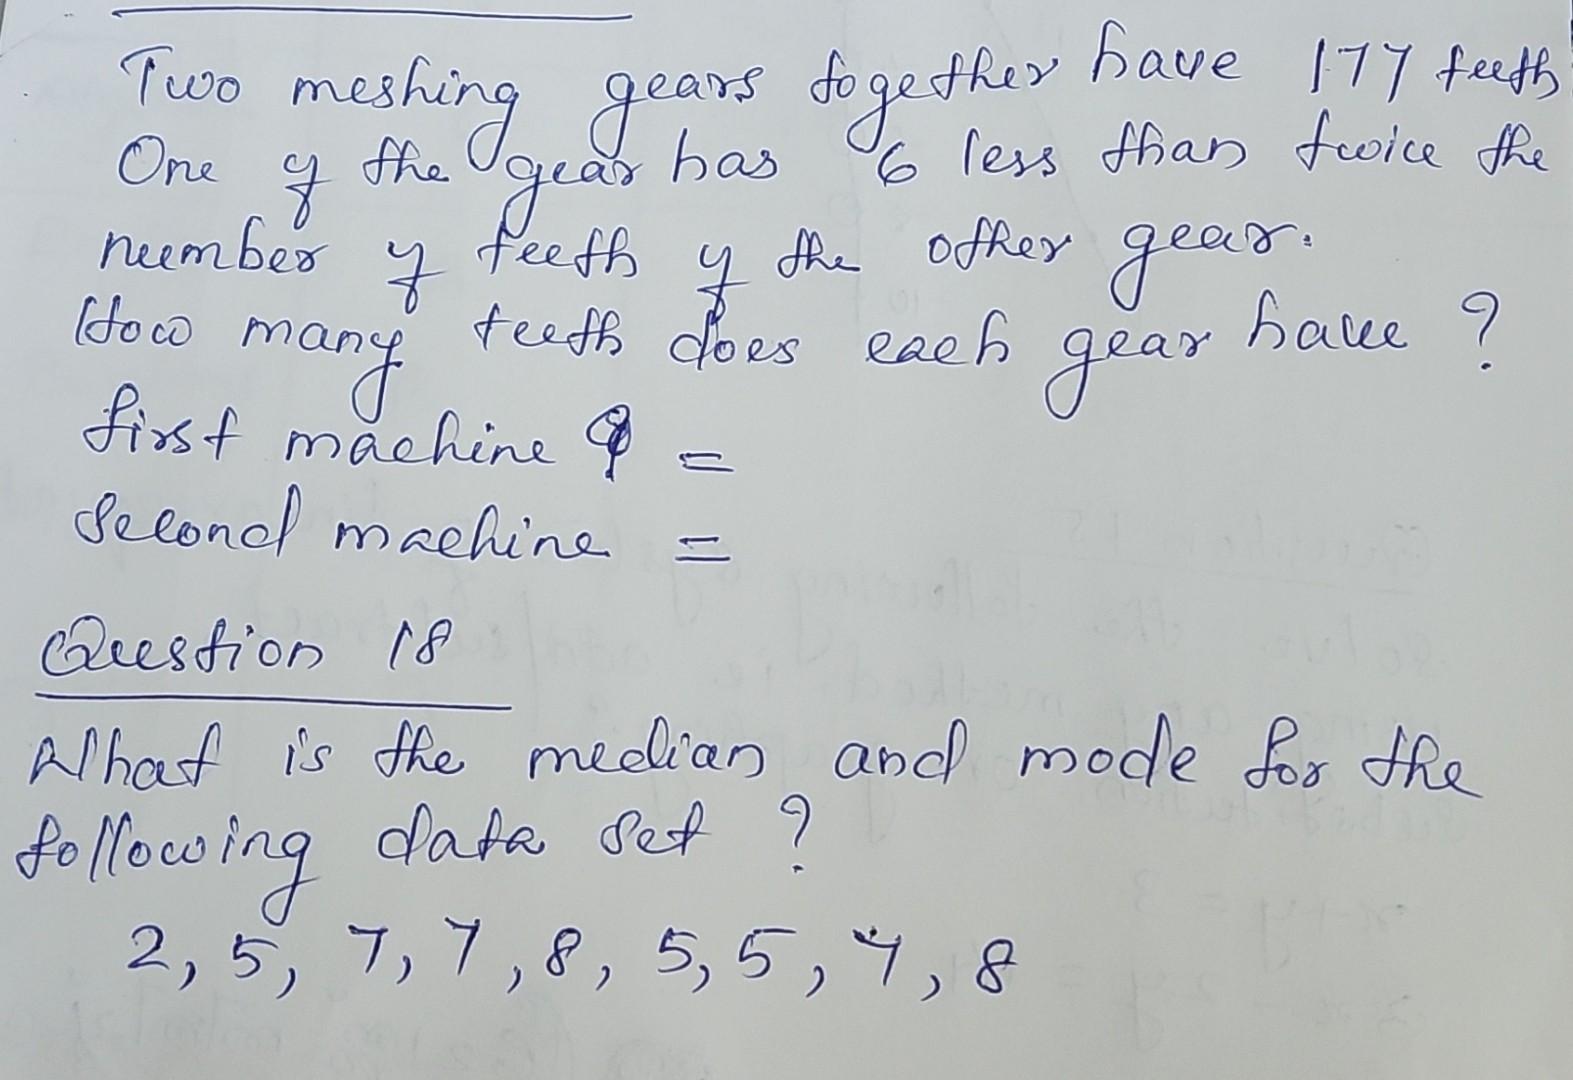 Two meshing gears together have 177 teeth
One of the gear has 6 less than twice the
number of teeth of the other gear.
How many teeth does each gear have ?
first machine =
Second machine =
Question 18
What is the median and mode for the
following data set ?
2, 5, 7, 7, 8, 5, 5, 4, 8